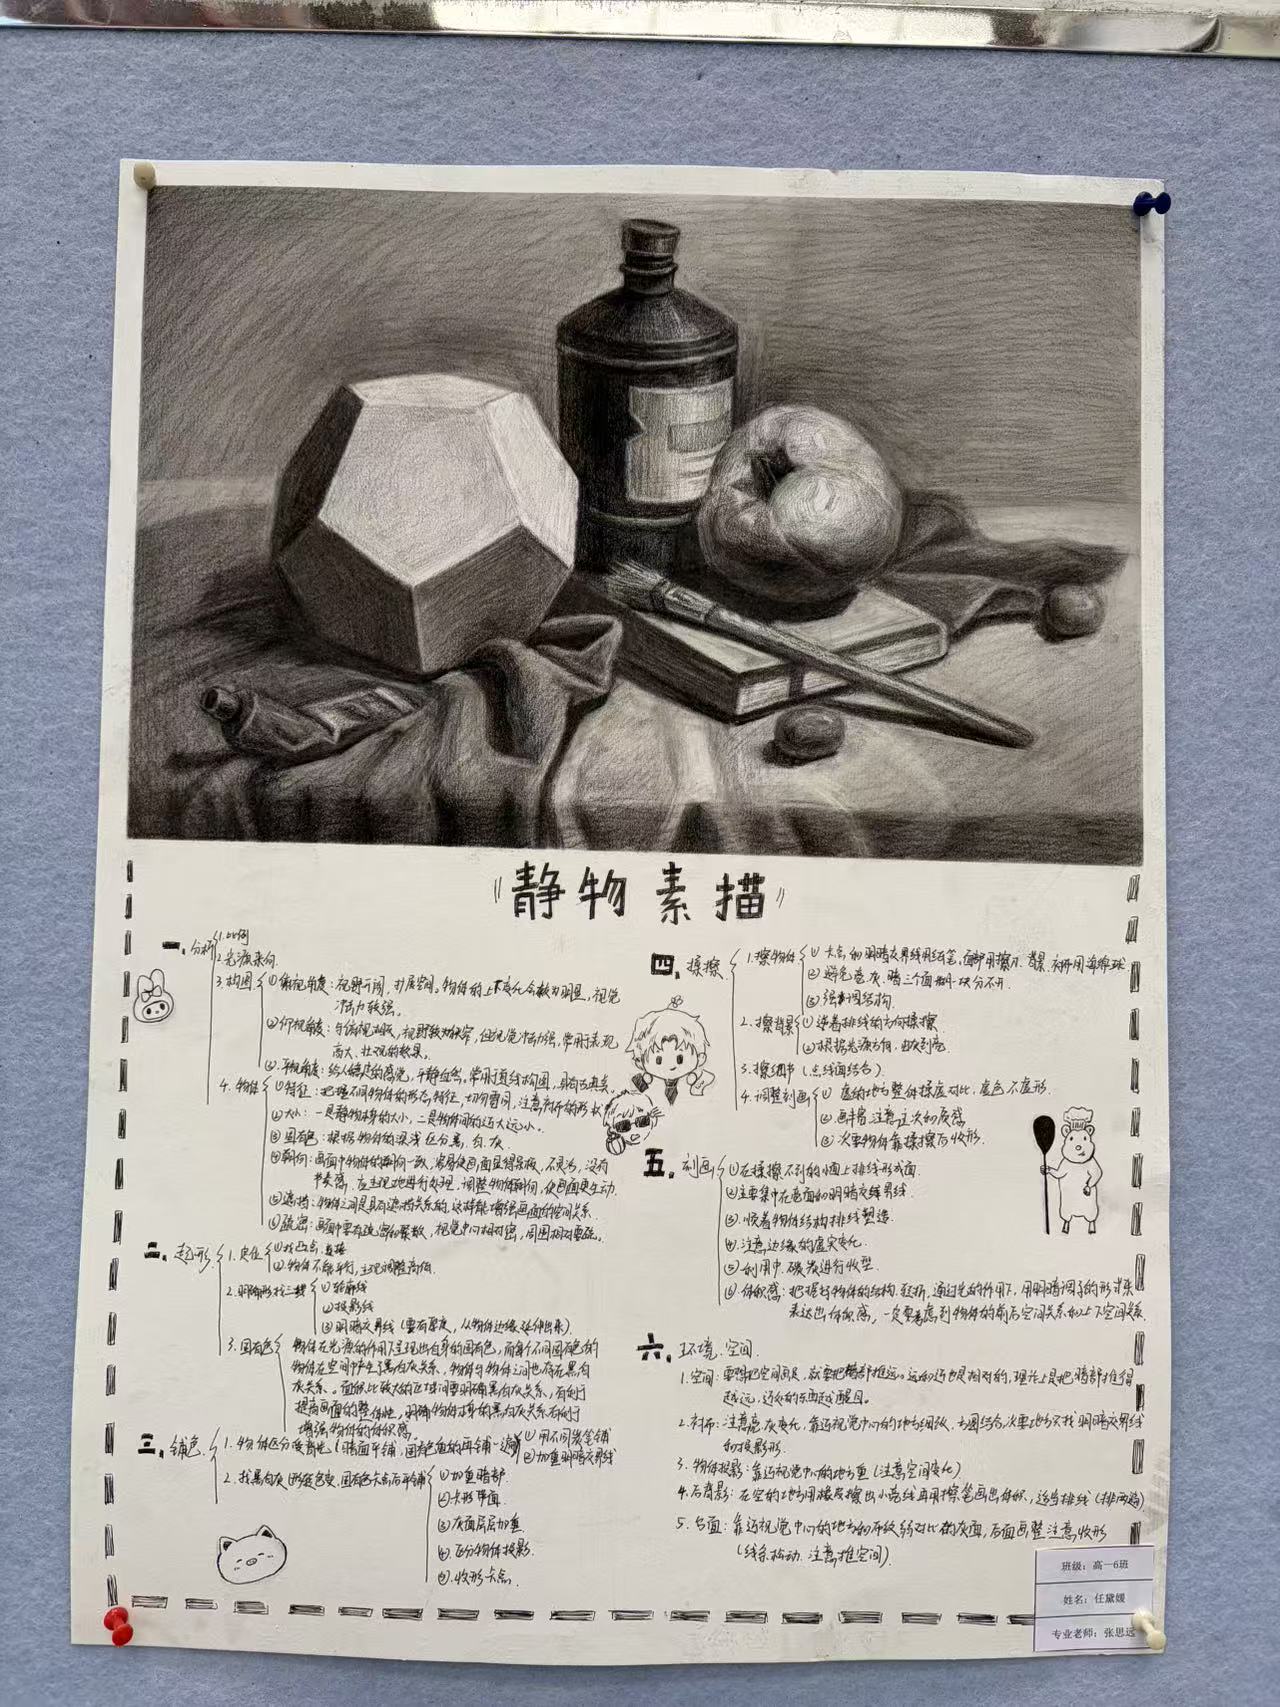 静物素描
一、分析
1.比例
2.光源来向
3.构图
①俯视角度：视野开阔，扩展空间。物体的上下变化会较为明显，视觉
冲击力较强。
②仰视角度：与俯视相反，视野较为狭窄，但视觉冲击力强，常用于表现
高大、壮观的效果。
③平视角度：给人稳定的感觉，平静自然。常用于直线构图，具有古典美。
4.物体
①特征：把握不同物体的形态，特征，切勿雷同，注意刻画的形状
②大小：一是静物本身的大小，二是物体间的近大远小。
③固有色：根据物体的深浅区分黑、白、灰
④朝向：画面中物体的朝向一致，容易使画面显得呆板，不灵活，没有
节奏感，应主观地进行处理，调整物体朝向，使画面更生动
⑤遮挡：物体之间是具有遮挡关系的，这样能增强画面的空间关系
⑥疏密：画面中要有疏密和聚散，视觉中心相对密，周围相对要疏。
二、起形
1.定位
①找凸点，连接
②物体不能平行，主观调整高低
2.明确形找三线
①轮廓线
②投影线
③明暗交界线（要有厚度，从物体边缘延伸出来）
3.固有色
物体在光源的作用下呈现出自身的固有色，而每个不同固有色的
物体在空间中产生了黑白灰关系，物体与物体之间也存在黑白
灰关系。面积比较大的区域间要明确黑白灰关系，有利于
提高画面的整体性，明确物体本身的黑白灰关系有利于
增强物体的体积感。
三、铺色
1.物体区分受背光（暗面平铺，固有色重的再铺一遍）
①用不同炭笔铺
②加重明暗交界线
2.找黑白灰
①加重暗部
②卡形平面
③灰面层层加重
④区分物体投影
⑤收形卡点
四、揉擦
1.擦物体
①卡点和明暗交界线用纸笔，面部用擦爪，背景、衬布用海绵球
②避免亮、灰、暗三个面糊一块分不开
③强调结构
2.擦背景
①逆着排线的方向揉擦
②根据光源方向，由灰到亮
3.擦细节（点线面结合）
4.调整刻画
①虚的地方整体揉虚对比，虚色不虚形
②画丰富注意主次和质感
③次要物体靠揉擦后收形
五、刻画
①在揉擦不到的小面上排线形成面
②主要集中在亮面和明暗交界线
③顺着物体结构排线塑造
④注意边缘的虚实变化
⑤利用中、碳炭进行收型
⑥体积感：把握好物体的结构、转折，通过光的作用下，用明暗调子的形式来
表达出体积感，一定要考虑到物体的前后空间关系和上下空间关系
六、环境、空间
1.空间：要想把空间画足，就要把暗部推远。远和近也是相对的，理论上是把暗部推得
越远，近处的东西越醒目。
2.衬布：注意亮灰变化，靠近视觉中心的地方细致，方圆结合，次要地方不找明暗交界线
和投影形
3.物体投影：靠近视觉中心的地方重（注意空间变化）
4.后背影：在空的地方用橡皮擦出小亮线再用擦笔画出体积，适当排线（排两遍）
5.台面：靠近视觉中心的地方和布纹弱对比在灰面，后面画整注意收形
（线条松动，注意推空间）
班级：高一6班
姓名：任黛媛
专业老师：张思远